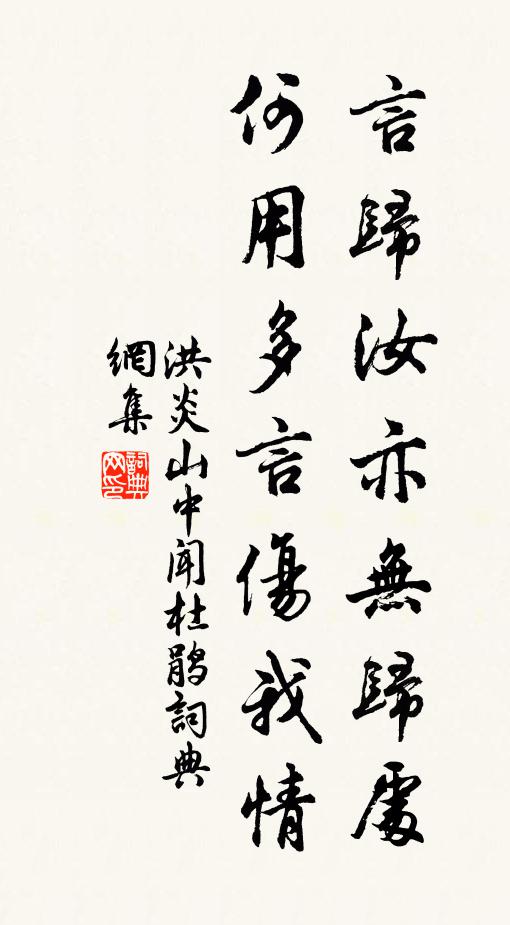 言歸汝亦無歸處
何用多言傷我情
洪炎山中聞杜鵑詞典
網集
詞典网印